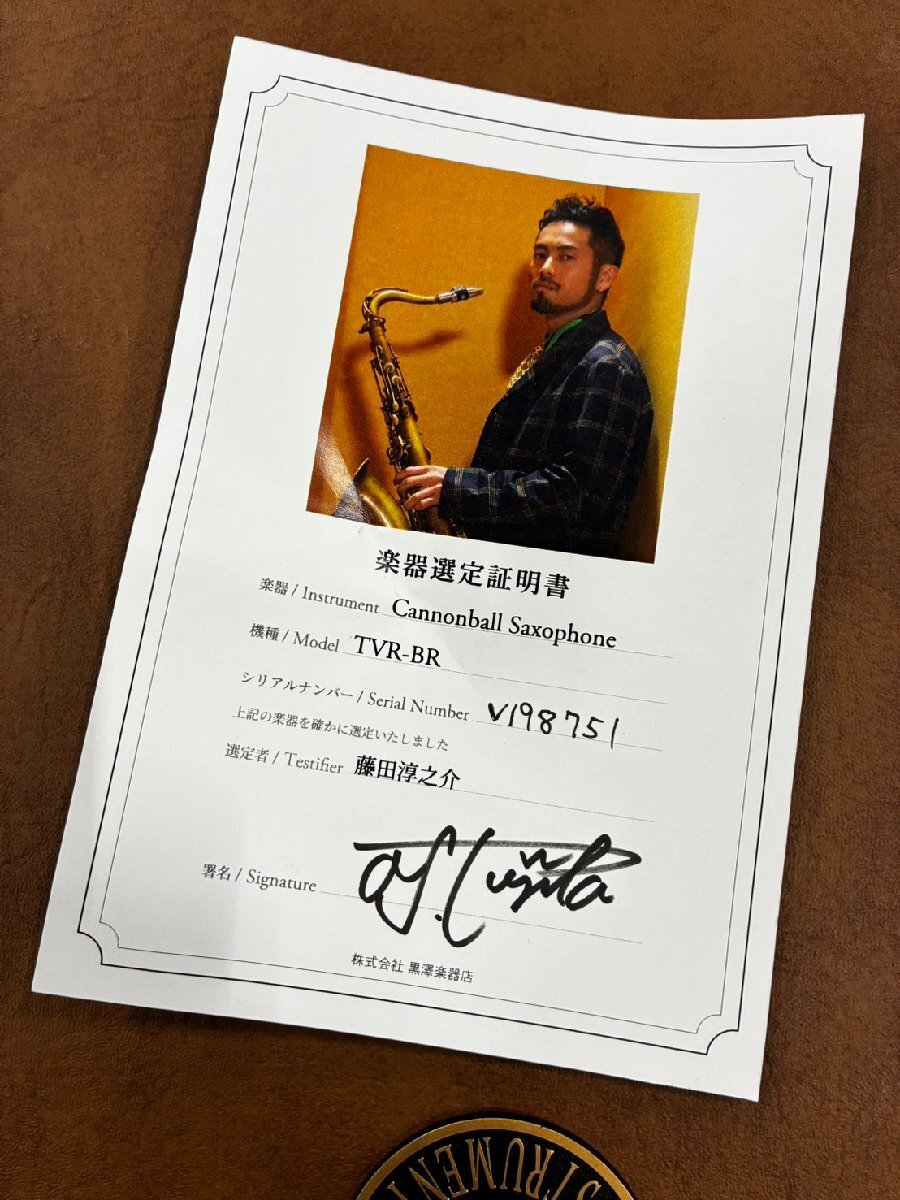 楽器選定証明書
楽器 / Instrument Cannonball Saxophone
機種 / Model TVR-BR
シリアルナンバー / Serial Number V198751
上記の楽器を確かに選定いたしました
選定者 / Testifier 藤田淳之介
署名 / Signature
株式会社 黒澤楽器店
STRUMENT